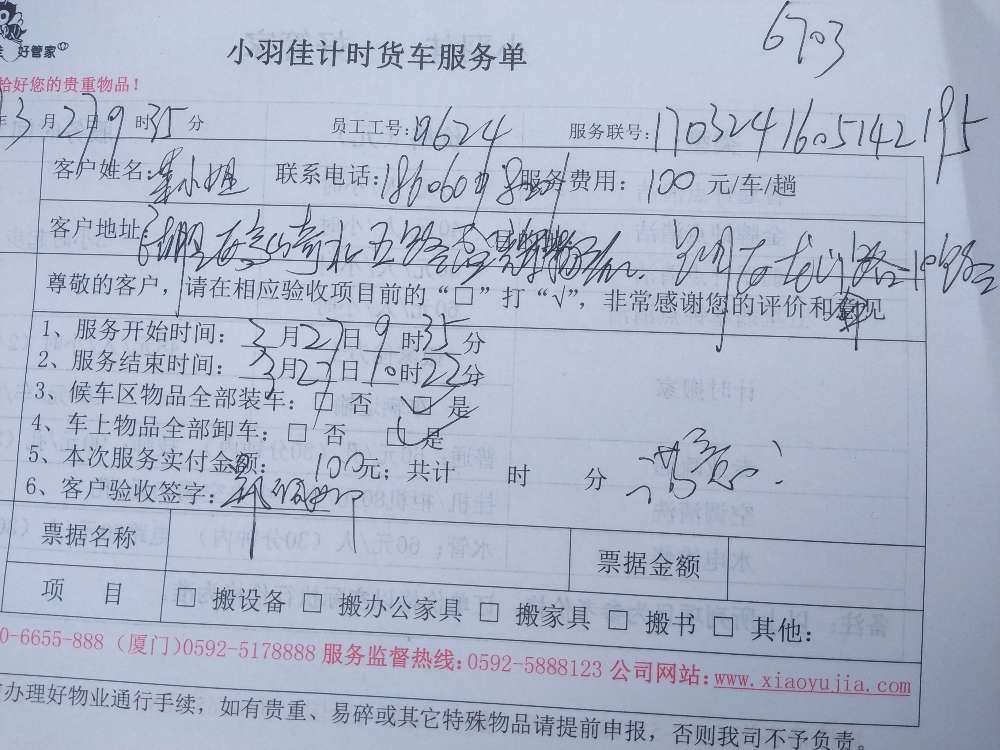 好管家
6703
小羽佳计时货车服务单
恰好您的贵重物品！
年3月27日9时35分 员工工号：9624 服务联号：1703241605142195
客户姓名：小姐 联系电话：186060 服务费用：100元/车/趟
客户地址：湖里
尊敬的客户，请在相应验收项目前的“□”打“√”，非常感谢您的评价和意见
1、服务开始时间：3月27日9时35分
2、服务结束时间：3月27日10时22分
3、候车区物品全部装车：□ 否 □ 是
4、车上物品全部卸车：□ 否 □ 是
5、本次服务实付金额：100元；共计 时 分 满意
6、客户验收签字：
票据名称 票据金额
项 目 □ 搬设备 □ 搬办公家具 □ 搬家具 □ 搬书 □ 其他：
0-6655-888（厦门）0592-5178888 服务监督热线：0592-5888123 公司网站：www.xiaoyujia.com
办理好物业通行手续，如有贵重、易碎或其它特殊物品请提前申报，否则我司不予负责。